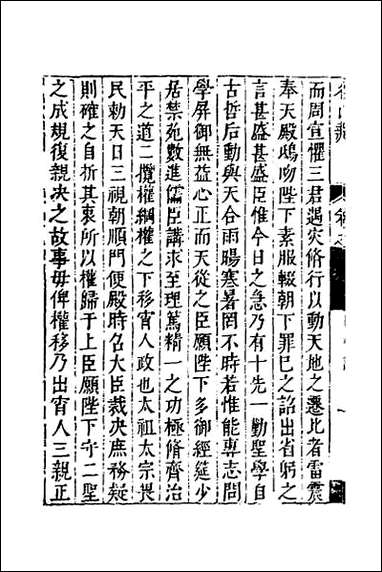 而周宣懼三君遇灾脩行以動天地之遷比者雷震
奉天殿鴟吻陛下素服輟朝下罪巳之詔出省躬之
言甚盛甚盛臣惟今日之急乃有十先一勤聖學自
古哲后動與天合雨暘寒暑罔不時若惟能專志問
學屏御無益心正而天從之臣願陛下多御經筵少
居禁苑數進儒臣講求至理篤精一之功極脩齊治
平之道二攬權綱權之下移宵人政也太祖太宗畏
民勅天日三視朝順門便殿時名大臣裁决庶務疑
則確之自折其衷所以權歸于上臣願陛下守二聖
之成規復親决之故事毋俾權移乃出宵人三親正